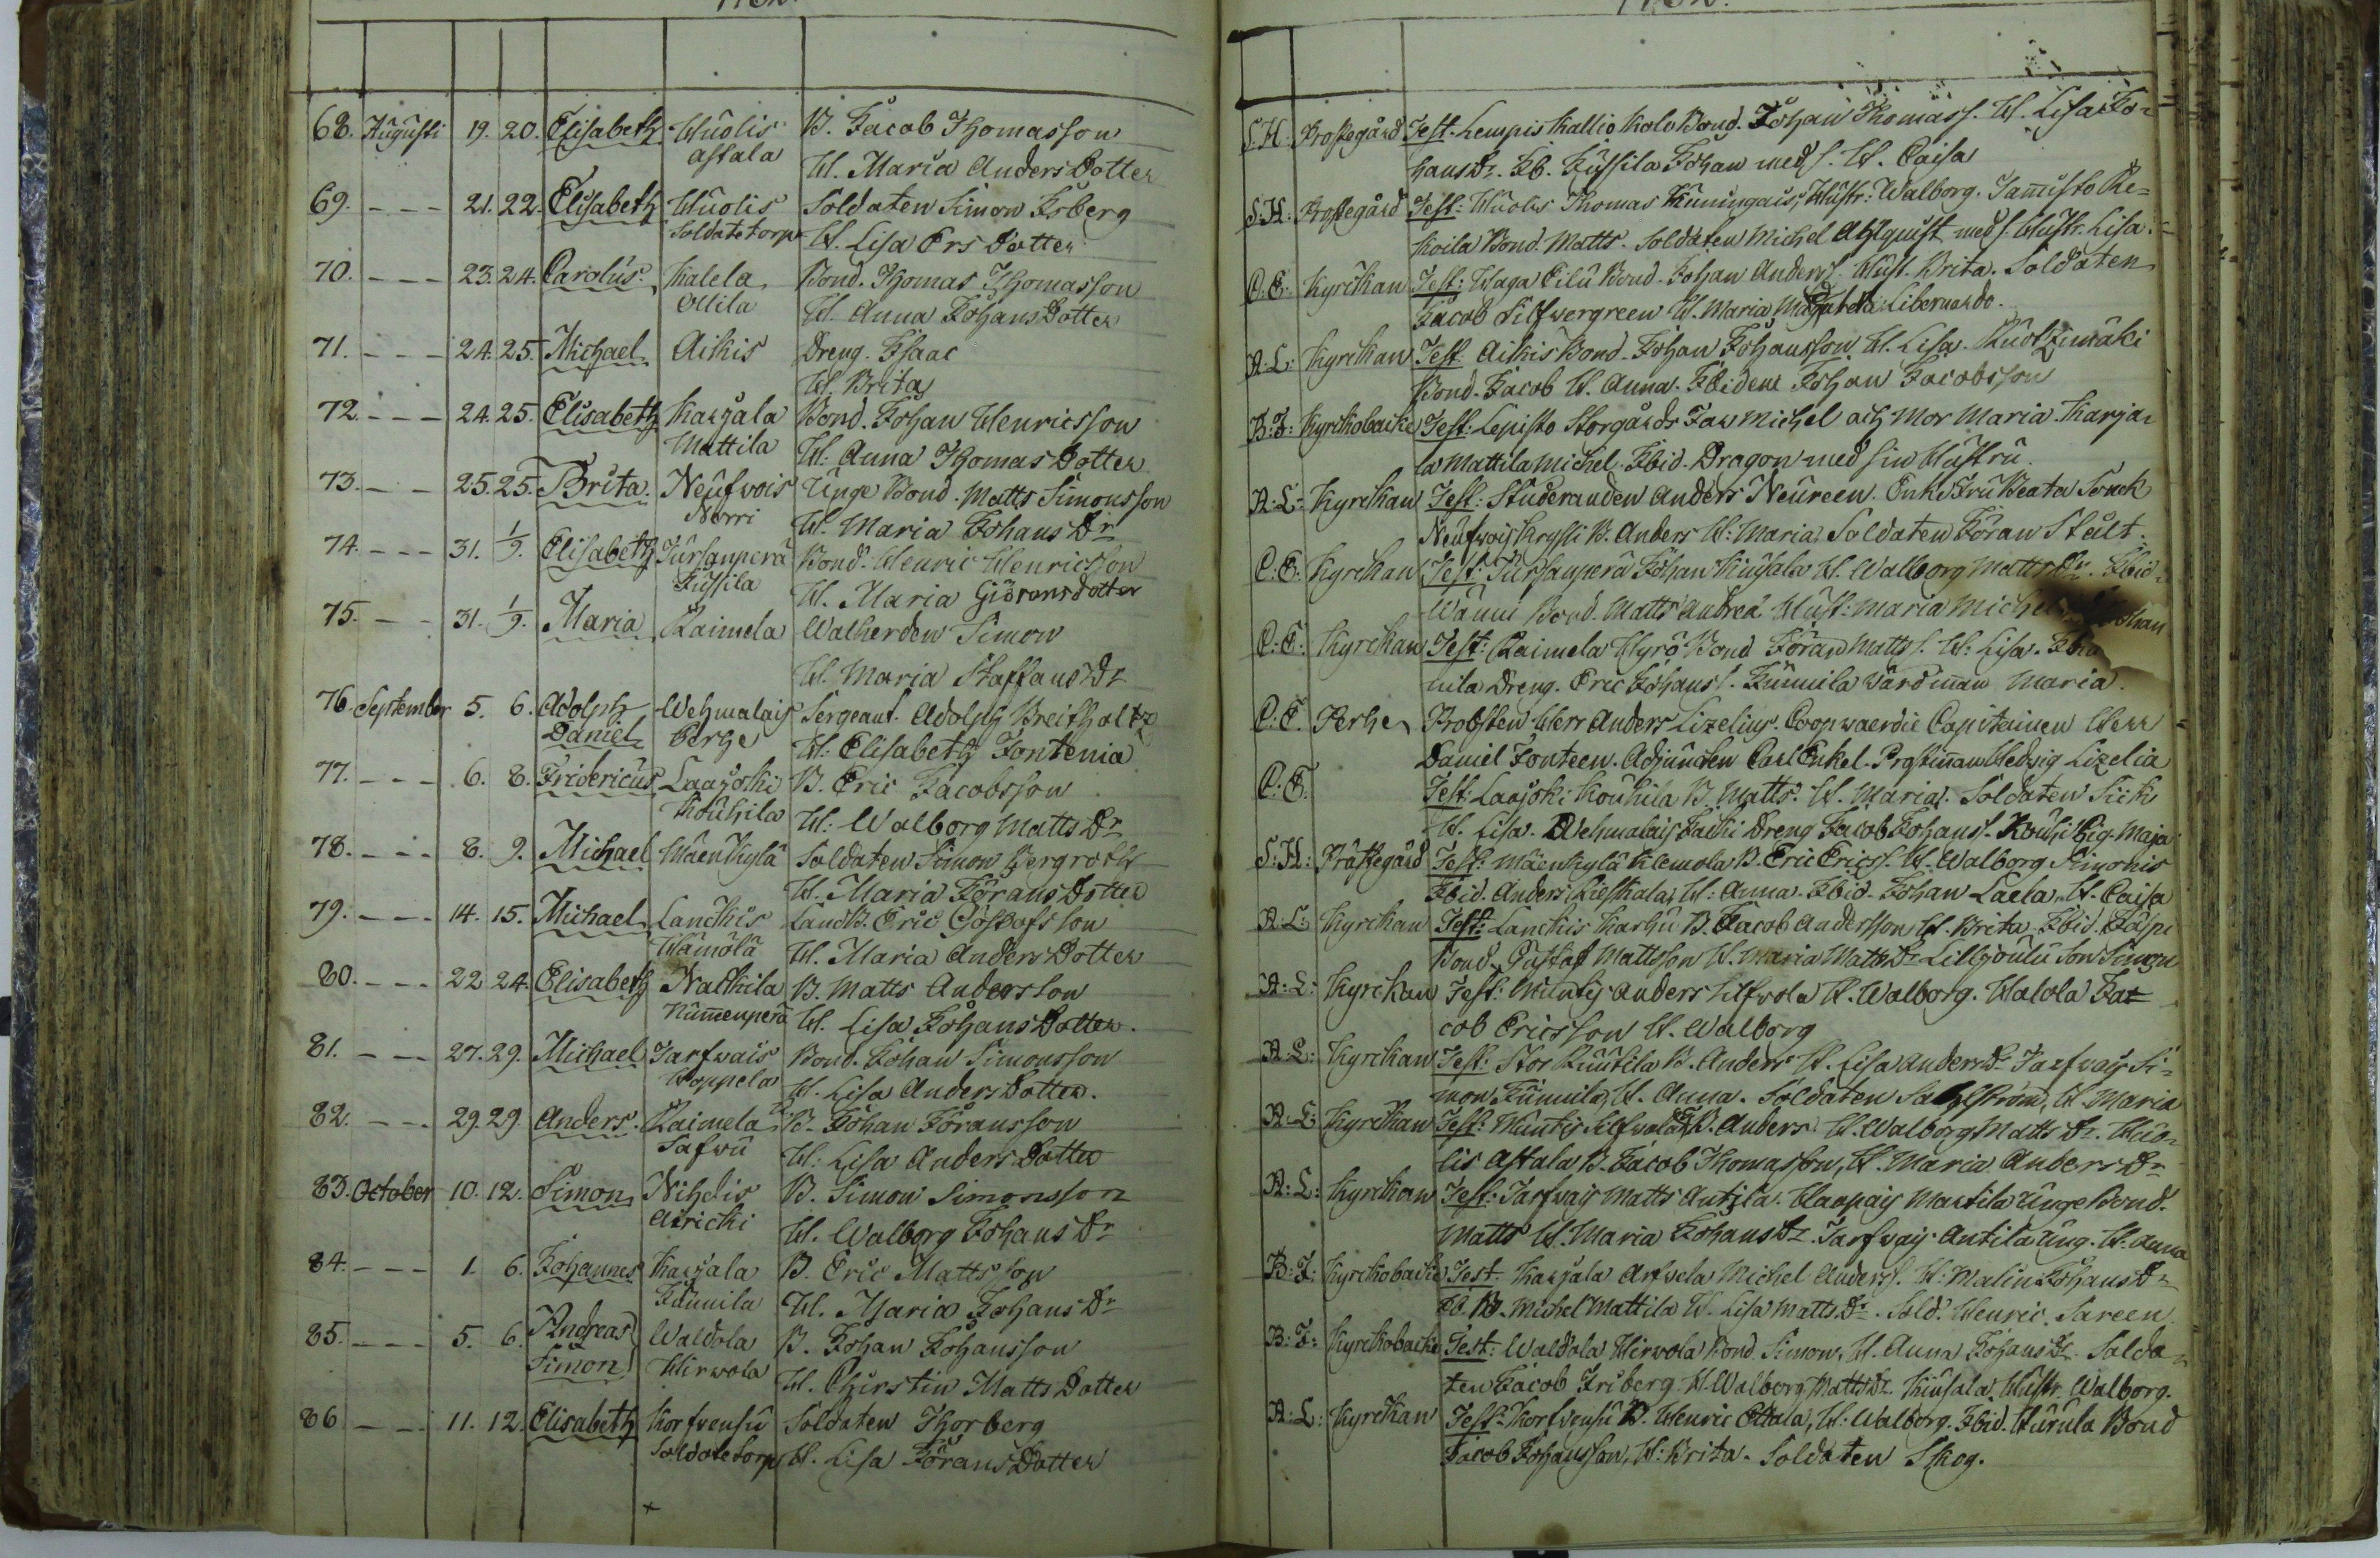 68. Augusti 19. 20. Elisabeth Huolis B. Jacob Thomasson
astala H. Maria Anders Dotter
69. - - - 21. 22. Elisabeth Huolis Soldaten Simon Foberg
Soldatetorp H. Lisa Ers Dotter
70. - - - 23. 24. Carolus Kalela Bond. Thomas Thomasson
Ollila H. Anna Johans Dotter
71. - - - 24. 25. Michael Aikis Dreng. Isaac
H. Brita
72. - - - 24. 25. Elisabeth Karjala Bond. Johan Henricsson
Mattila H. Anna Thomas Dotter
73. - - 25. 25. Brita. Neufwois Unge Bond. Matts Simonsson
Norri H. Maria Johans Dr
74. - - - 31. 1/9. Elisabeth Tursanperä Bond. Henric Henricsson
Jussila H. Maria Giörensdotter
75. - - 31. 1/9. Maria Raimela Walherden Simon
H. Maria Staffans Dr
76. September 5. 6. Adolph Wehmalais Sergeant. Adolph Breitholtz
Daniel berge H: Elisabeth Fontenia
77. - - - 6. 8. Fridericus Laajoki B. Eric Jacobsson
Kouhila H: Walborg Matts Dr
78. - - - 8. 9. Michael Mäenkylä Soldaten Simon Bergroth
H. Maria Jörans Dotter
79. - - - 14. 15. Michael Lanckis LandB. Eric Göstafsson
Hämölä H. Maria Anders Dotter
80. - - - 22 24. Elisabeth Nalkila B. Matts Andersson
Nummenperä H. Lisa Johans Dotter.
81. - - - 27. 29. Michael Tarfwais Bond. Johan Simonsson
Hoppela H. Lisa Anders Dotter.
82. - - - 29. 29. Anders. Raimela B. Johan Joransson
Safwu H: Lisa Anders Dotter
83. October 10. 12. Simon Nihdis B. Simon Simonsson
Airicki H. Walborg Johans Dr
84. - - - 1. 6. Johannes Karjala B. Eric Mattsson
Junnila H. Maria Johans Dr
85. - - - 5. 6. Andreas Waldola B. Johan Johansson
Simon Hirwola H. Chirstin Matts Dotter
86 - - - 11. 12. Elisabeth Korfvensu Soldaten Thorberg
Soldatetorp H. Lisa Jörans Dotter
S. H: Prostegård Test. Lempis Kallio Kalo Bond. Johan Thomass. H. Lisa Jo-
hans Dr. Ib. Jussila Johan med s. H. Caisa
S. H. Prostegård Test: Huolis Thomas Kuningais, Hustr: Walborg. Tamisto Re=
koila Bond. Matts. Soldaten Michel Ahlquist med s. Hustr. Lisa.
C. E: Kyrckan Test: Haga Eilu Bond. Johan Anderss. Hust. Brita. Soldaten
Jacob Silfwergreen H. Maria Libernardo.
A: L: Kyrckan Test: Aikis Bond. Johan Johansson H. Lisa. Ruotzimäki
Bond. Jacob H. Anna. Ibidem Johan Jacobsson
B: F: Kyrckobacke Test: Lepisto Storgårds Far Michel och Mor Maria. Karja-
la Mattila Michel. Ibid. Dragon med sin Hustru
A: L: Kyrckan Test: Studeranden Anders Neureen. Enke Fru Beata Sonck
Neufwois Krysti B. Anders H: Maria, Soldaten Jöran Stult.
C: E: Kyrckan Test: Tursanperä Johan Kiusala H. Walborg Matts Dr. Ibid.
Wänni Bond. Matts Andrea Hust: Maria Michel
C: E: Kyrckan Test: Raimela Hyrö Bond Jöran Matts s. H: Lisa.
nila Dreng. Eric Johans s. Junnila Wärdinnan Maria.
C. E. Perhe Probsten Herr Anders Lizelius. Coopvaerdie Capitainen Herr
Daniel Fonteen. Adjuncten Carl Enkel. Prostinnan Hedvig Lizelia
C. E. Test: Laajoki Kouhila B. Matts. H. Maria. Soldaten Siik
H. Lisa. Wehmalais Jacki Dreng Jacob Johans s. Kouhi Pig. Maja
S: H: Prästegård Test: Mäenkylä Klemola B. Eric Erics s. H. Walborg Simonis
Ibid. Anders Kieskala, H: Anna. Ibid. Johan Laela, H. Caisa
A: L: Kyrckan Test: Lanckis Karhu B. Jacob Andersson H. Brita. Ibid. Jaspi
Bond. Gustaf Mattsson H. Maria Matts Dr Lilljoulu Son Simon
A: L: Kyrckan Test: Muntis Anders Silfvola H. Walborg. Halola Ja=
cob Ericsson H. Walborg
A: L: Kyrckan Test: Stor Ruutila B. Anders H. Lisa Anders Dr Tarfwais Si=
mon Junnila, H. Anna. Soldaten Sahlström, H. Maria
A: L: Kyrckan Test: Muntis Silfvola B. Anders. H. Walborg Matts Dr. Huo-
lis Astala B. Jacob Thomasson, H. Maria Anders Dr
A: L: Kyrckan Test: Tarfvais Matts Antila. Haapais Martila Unge Bond.
Matts H. Maria Johans Dr. Tarfvais Antila Ung. H. Anna
B: F: Kyrckobacke Test. Karjala Arfvela Michel Anders s. H: Malin Johans Dr
Ib. B. Michel Mattila H. Lisa Matts Dr. Sold. Henric Sareen.
B: F: Kyrckobacke Test: Waldola Hirwola Bond Simon, H. Anna Johans Dr. Solda-
ten Jacob Friberg. H. Walborg Matts Dr. Kiusala Hustr. Walborg.
A: L: Kyrckan Test: Korfvensu B. Henric Ollala, H: Walborg. Ibid. Hurula Bond
Jacob Johansson, H: Brita. Soldaten Skog.